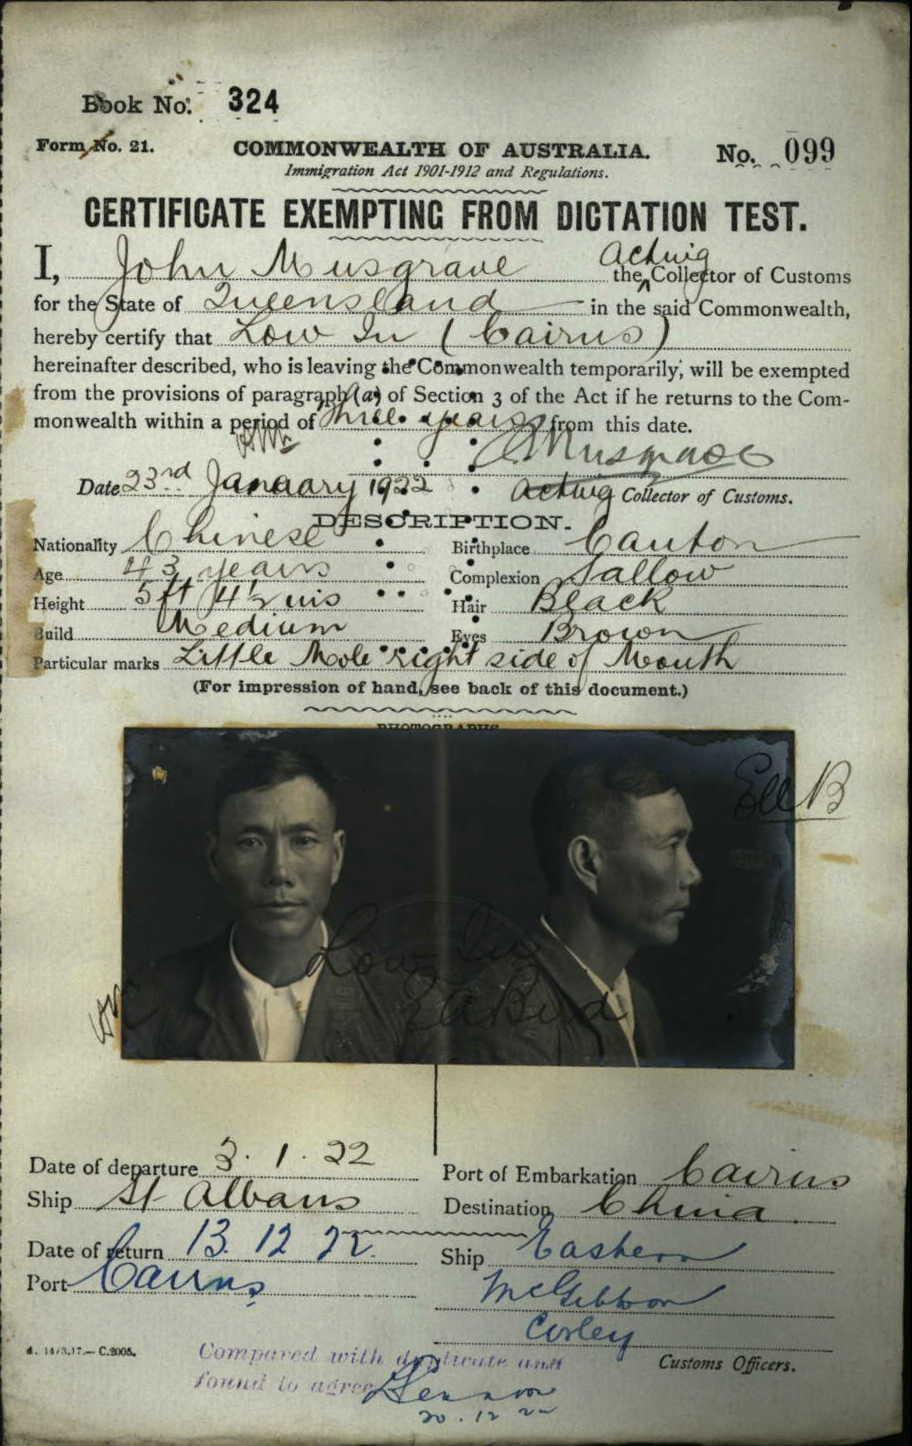 Book No. 324
Form No. 21. COMMONWEALTH OF AUSTRALIA. No. 099
Immigration Act 1901-1912 and Regulations.
CERTIFICATE EXEMPTING FROM DICTATION TEST.
I, John Musgrave the Acting Collector of Customs
for the State of Queensland in the said Commonwealth,
hereby certify that Low In (Cairns)
hereinafter described, who is leaving the Commonwealth temporarily, will be exempted
from the provisions of paragraph (a) of Section 3 of the Act if he returns to the Com-
monwealth within a period of three years from this date.
Musgrave
Date 23rd January 1922 Acting Collector of Customs.
DESCRIPTION.
Nationality Chinese Birthplace Canton
Age 43 years Complexion Sallow
Height 5ft 4½ ins Hair Black
Build Medium Eyes Brown
Particular marks Little Mole right side of Mouth
(For impression of hand, see back of this document.)
PHOTOGRAPHS
Low In
Date of departure 3.1.22 Port of Embarkation Cairns
Ship St Albans Destination China.
Date of return 13.12.22 Ship Eastern
Port Cairns McGibbon
Corley
Customs Officers.
Compared with duplicate and
found to agree
20.12.22